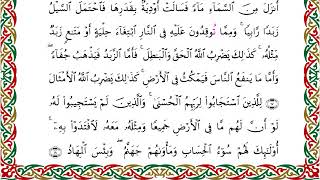 أَنزَلَ مِنَ ٱلسَّمَآءِ مَآءً فَسَالَتْ أَوْدِيَةٌۢ بِقَدَرِهَا فَٱحْتَمَلَ ٱلسَّيْلُ
زَبَدًا رَّابِيًا ۚ وَمِمَّا يُوقِدُونَ عَلَيْهِ فِى ٱلنَّارِ ٱبْتِغَآءَ حِلْيَةٍ أَوْ مَتَـٰعٍ زَبَدٌ
مِّثْلُهُۥ ۚ كَذَٰلِكَ يَضْرِبُ ٱللَّهُ ٱلْحَقَّ وَٱلْبَـٰطِلَ ۚ فَأَمَّا ٱلزَّبَدُ فَيَذْهَبُ جُفَآءً ۖ
وَأَمَّا مَا يَنفَعُ ٱلنَّاسَ فَيَمْكُثُ فِى ٱلْأَرْضِ ۚ كَذَٰلِكَ يَضْرِبُ ٱللَّهُ ٱلْأَمْثَالَ
لِلَّذِينَ ٱسْتَجَابُوا۟ لِرَبِّهِمُ ٱلْحُسْنَىٰ ۚ وَٱلَّذِينَ لَمْ يَسْتَجِيبُوا۟ لَهُۥ
لَوْ أَنَّ لَهُم مَّا فِى ٱلْأَرْضِ جَمِيعًا وَمِثْلَهُۥ مَعَهُۥ لَٱفْتَدَوْا۟ بِهِۦٓ ۚ
أُو۟لَـٰٓئِكَ لَهُمْ سُوٓءُ ٱلْحِسَابِ وَمَأْوَىٰهُمْ جَهَنَّمُ ۖ وَبِئْسَ ٱلْمِهَادُ